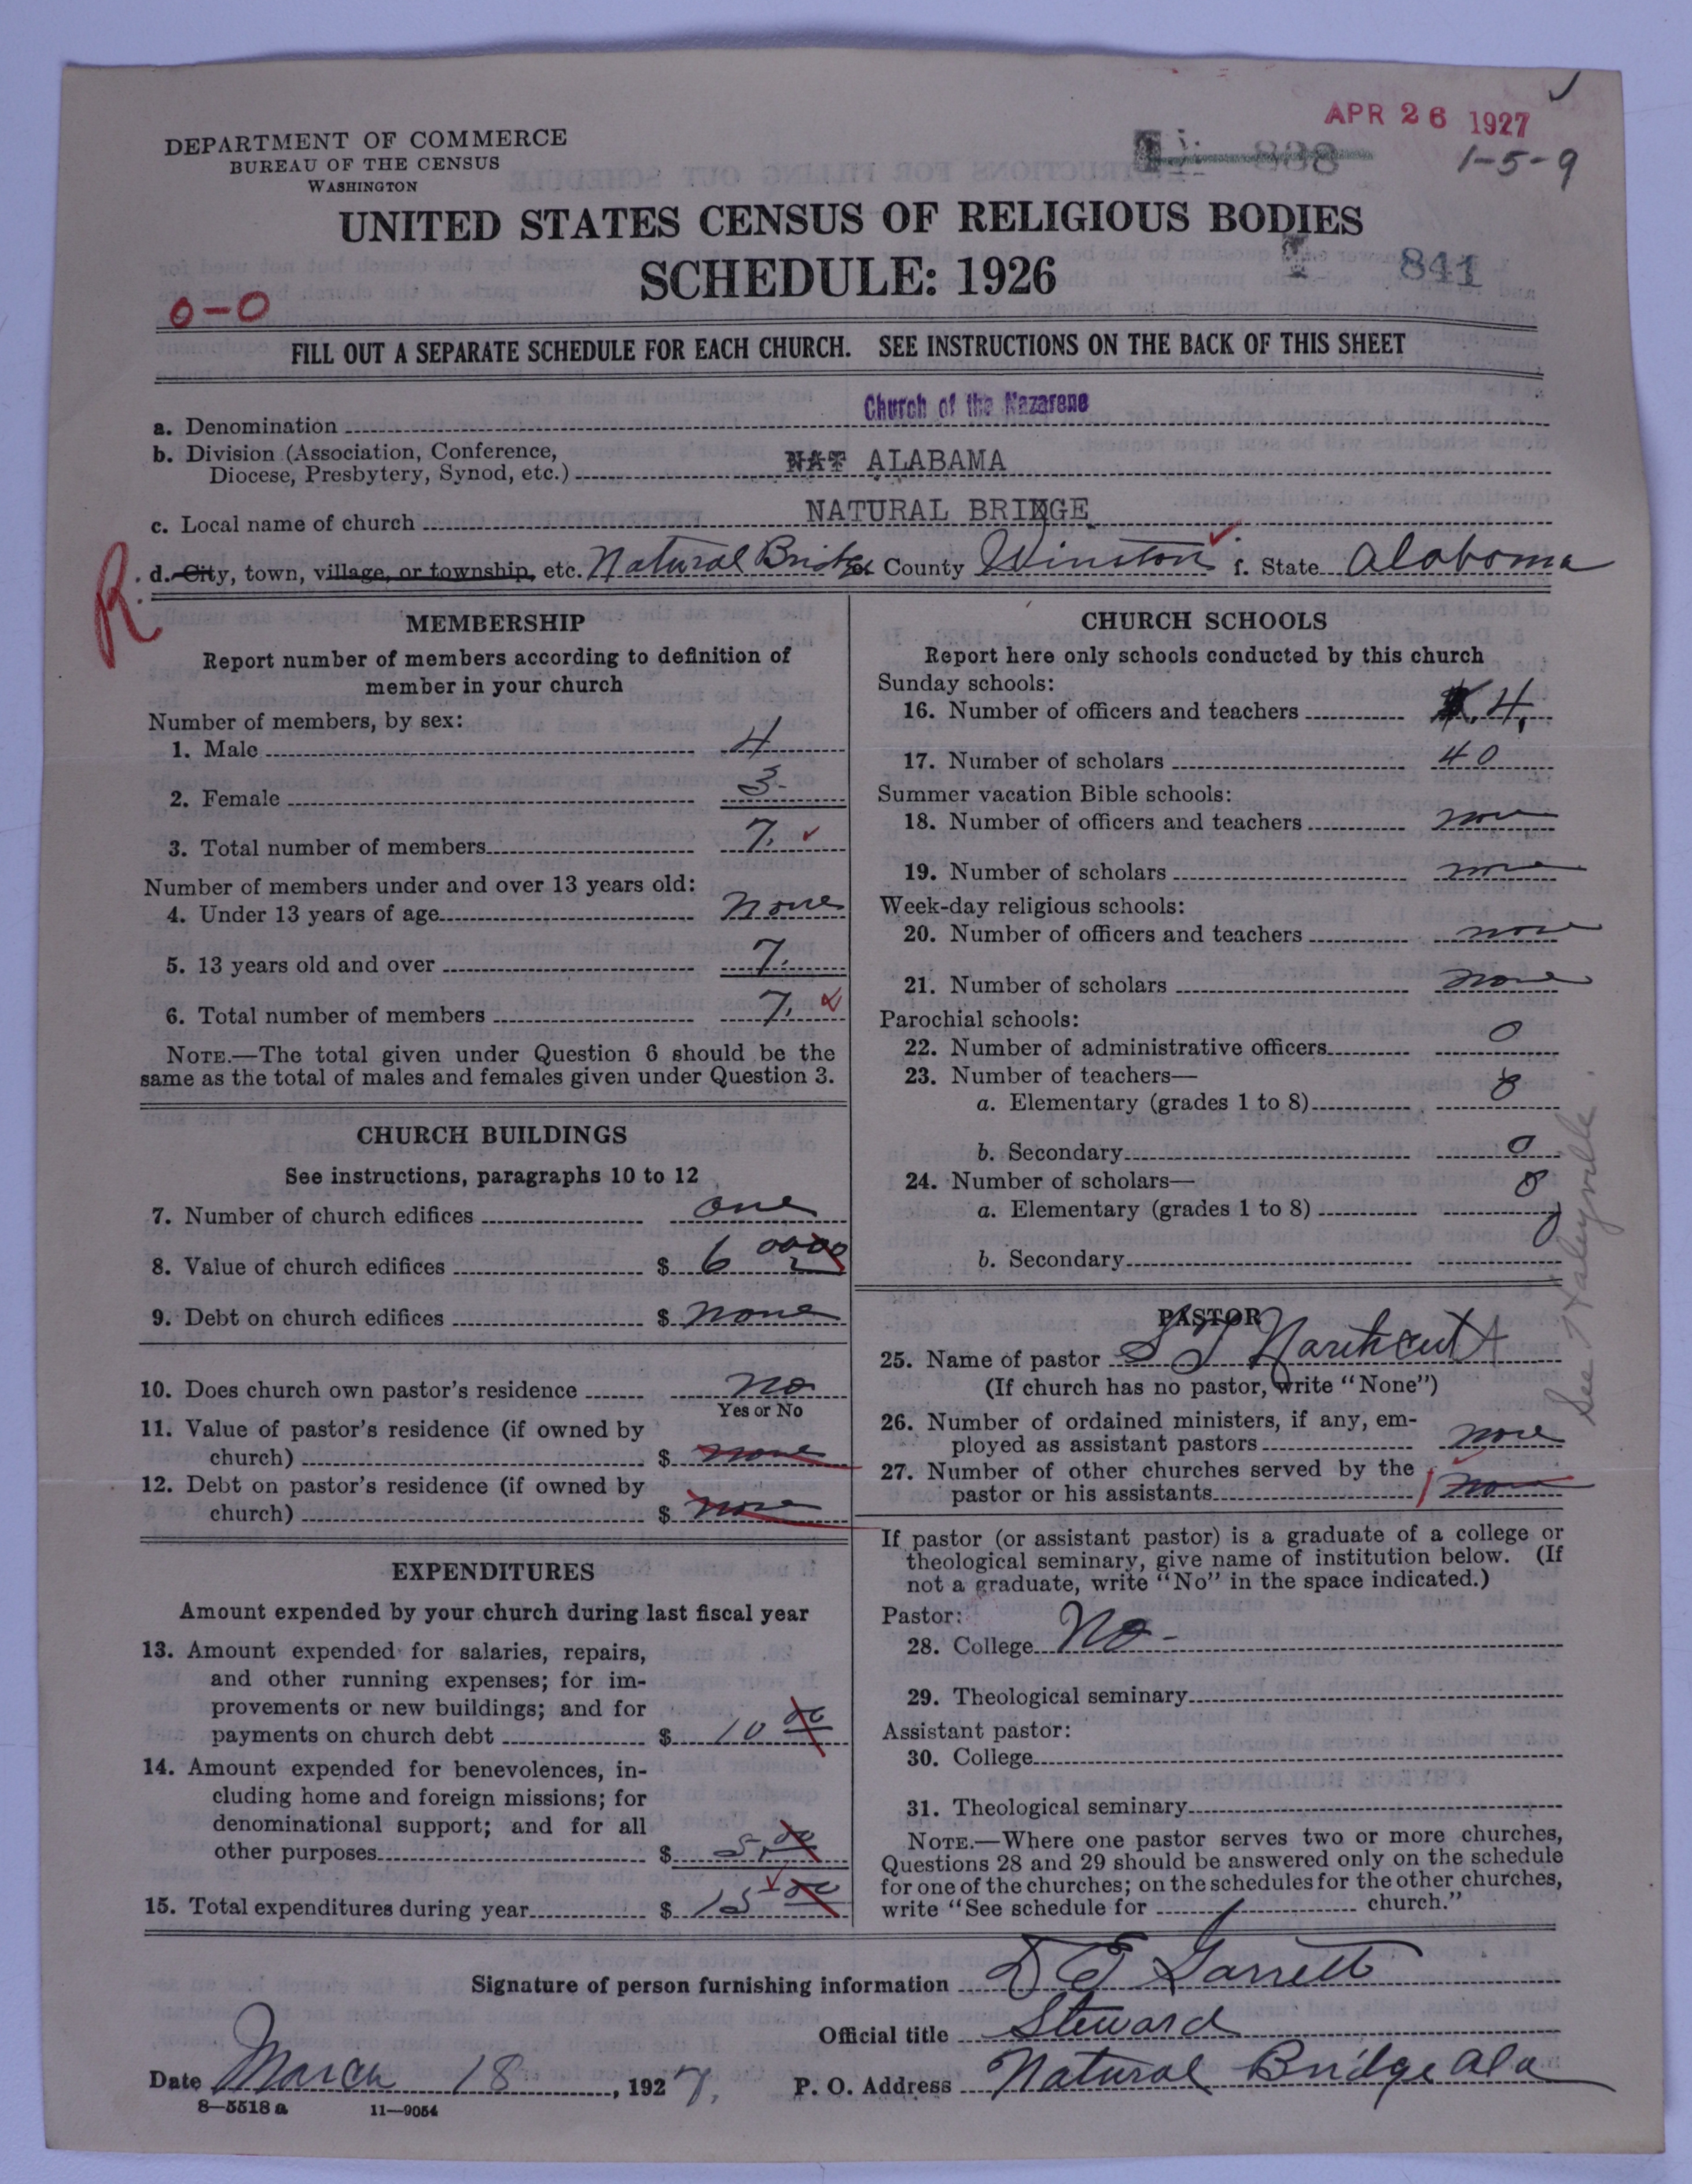 APR 26 1927
1-5-9
DEPARTMENT OF COMMERCE
BUREAU OF THE CENSUS
WASHINGTON
838
UNITED STATES CENSUS OF RELIGIOUS BODIES
SCHEDULE: 1926
841
0-0
FILL OUT A SEPARATE SCHEDULE FOR EACH CHURCH. SEE INSTRUCTIONS ON THE BACK OF THIS SHEET
a. Denomination Church of the Nazarene
b. Division (Association, Conference,
Diocese, Presbytery, Synod, etc.) NAT ALABAMA
c. Local name of church NATURAL BRIDGE
R. d. City, town, village, or township, etc. Natural Bridge e. County Winston f. State Alabama
MEMBERSHIP
Report number of members according to definition of
member in your church
Number of members, by sex:
1. Male 4
2. Female 3
3. Total number of members 7.
Number of members under and over 13 years old:
4. Under 13 years of age none
5. 13 years old and over 7.
6. Total number of members 7.
NOTE.—The total given under Question 6 should be the
same as the total of males and females given under Question 3.
CHURCH BUILDINGS
See instructions, paragraphs 10 to 12
7. Number of church edifices one
8. Value of church edifices $ 6 0000
9. Debt on church edifices $ none
10. Does church own pastor's residence no
Yes or No
11. Value of pastor's residence (if owned by
church) $ none
12. Debt on pastor's residence (if owned by
church) $ none
EXPENDITURES
Amount expended by your church during last fiscal year
13. Amount expended for salaries, repairs,
and other running expenses; for im-
provements or new buildings; and for
payments on church debt $ 10 00
14. Amount expended for benevolences, in-
cluding home and foreign missions; for
denominational support; and for all
other purposes $ 5.00
15. Total expenditures during year $ 15 00
CHURCH SCHOOLS
Report here only schools conducted by this church
Sunday schools:
16. Number of officers and teachers 4.
17. Number of scholars 40
Summer vacation Bible schools:
18. Number of officers and teachers none
19. Number of scholars none
Week-day religious schools:
20. Number of officers and teachers none
21. Number of scholars none
Parochial schools:
22. Number of administrative officers 0
23. Number of teachers—
a. Elementary (grades 1 to 8) 0
b. Secondary 0
24. Number of scholars—
a. Elementary (grades 1 to 8) 0
b. Secondary 0
See Haleyville
PASTOR
25. Name of pastor S T
(If church has no pastor, write "None")
26. Number of ordained ministers, if any, em-
ployed as assistant pastors none
27. Number of other churches served by the
pastor or his assistants 1 none
If pastor (or assistant pastor) is a graduate of a college or
theological seminary, give name of institution below. (If
not a graduate, write "No" in the space indicated.)
Pastor:
28. College No-
29. Theological seminary
Assistant pastor:
30. College
31. Theological seminary
NOTE.—Where one pastor serves two or more churches,
Questions 28 and 29 should be answered only on the schedule
for one of the churches; on the schedules for the other churches,
write "See schedule for church."
Signature of person furnishing information D E Garrett
Official title Steward
Date March 18, 1927. P. O. Address Natural Bridge Ala
8—5518 a 11—9054